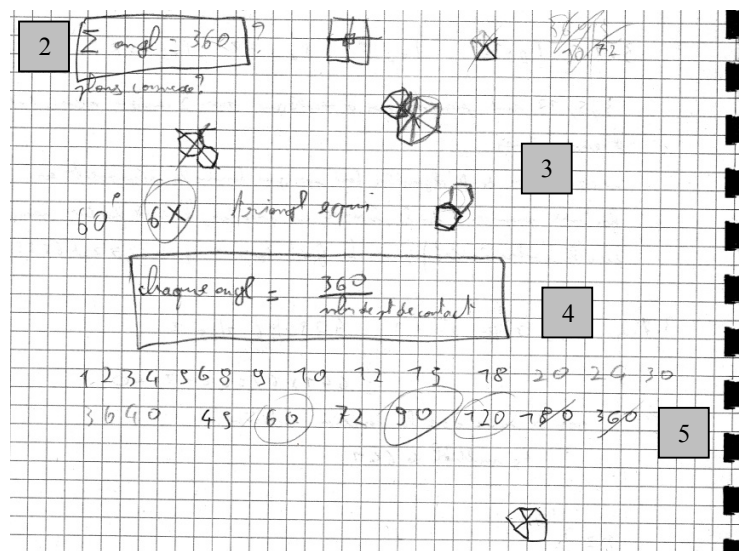 2
Σ angl = 360 ?
3
60° 6X triangl equi
chaque angl = 360
nbr de pt de contact
4
1 2 3 4 5 6 8 9 10 12 15 18 20 24 30
36 40 45 60 72 90 120 180 360
5